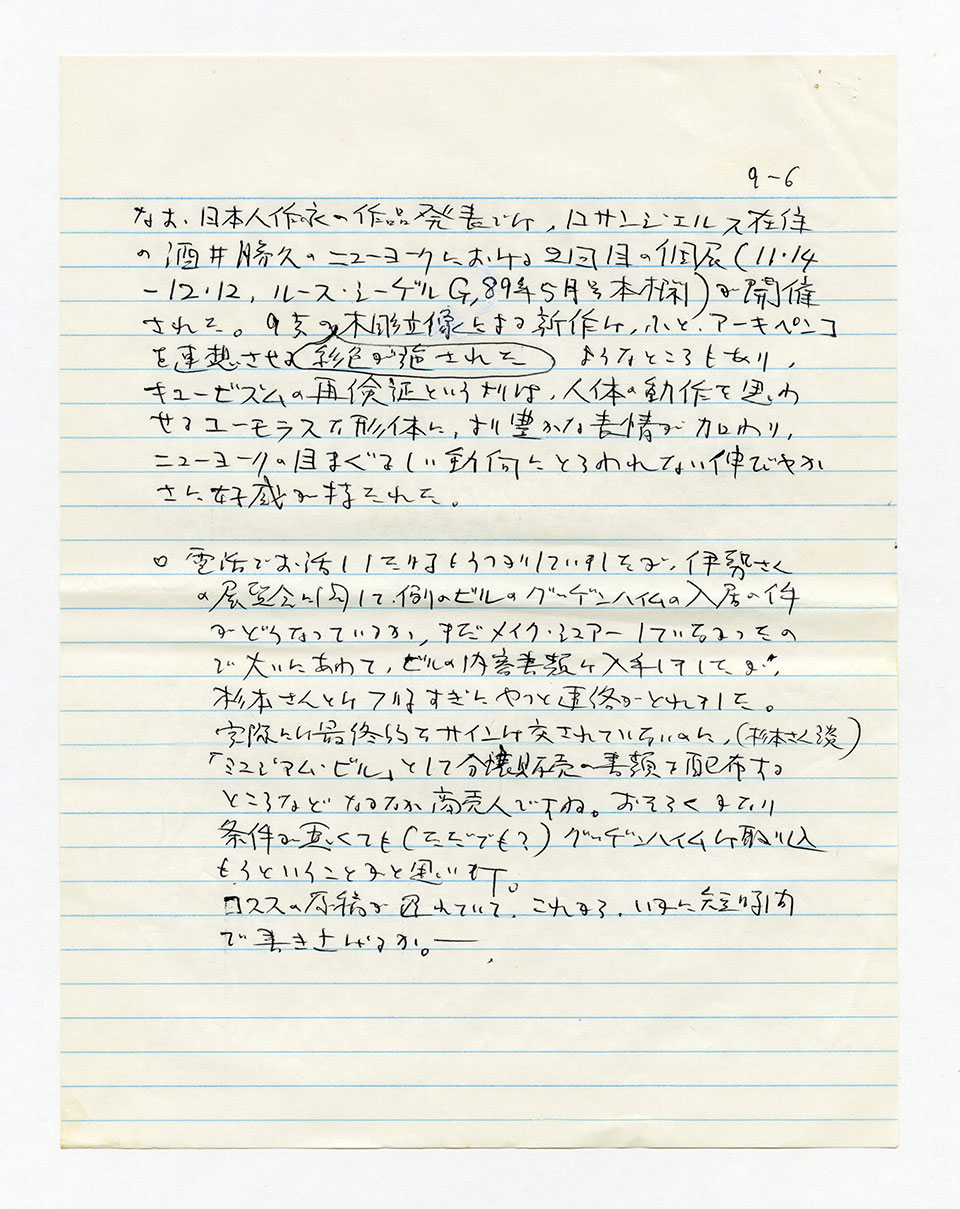 9-6
なお、日本人作家の作品発表では、ロサンジェルス在住
の酒井勝久のニューヨークにおける2回目の個展(11・14
-12・12, ルース・シーゲルG, 89年5月号本欄)が開催
された。9点の木彫立像による新作は、ふと、アーキペンコ
を連想させる彩色が施された ようなところもあり、
キュービズムの再検証というよりは、人体の動作を思わ
せるユーモラスな形体に、より豊かな表情が加わり、
ニューヨークの目まぐるしい動向にとらわれない伸びやか
さに好感が持たれた。
○ 電話でお話ししたような つもりでいましたが、伊勢さん
の展覧会に関して、例のビルのグッゲンハイムの入居の件
がどうなっているか、まだメイク・シュアーしていなかったの
で大いにあわて、ビルの内容書類は入手しましたが、
杉本さんとは すぎにやっと連絡がとれました。
実際には最終的なサインは交されていないのに、(杉本さん談)
「ミュジアム・ビル」として分譲販売の書類を配布する
ところなどなかなか商売人ですね。おそらくかなり
条件が悪くても(ただでも?)グッゲンハイムは取り込
もうということかと思います。
コススの原稿が遅れていて、これから、いかに短時間
で書き上げるか。―